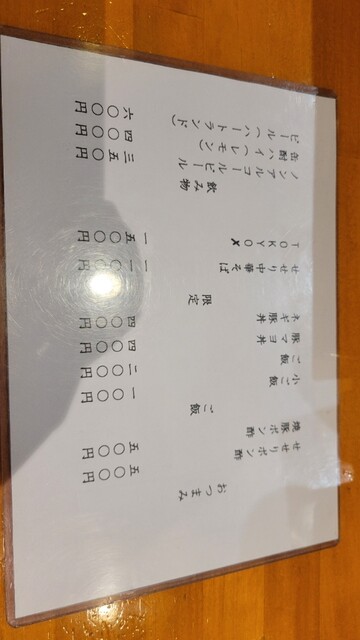 おつまみ
せせりポン酢 五〇〇円
焼豚ポン酢 五〇〇円
ご飯
小ご飯 一〇〇円
ご飯 二〇〇円
豚マヨ丼 四〇〇円
ネギ豚丼 四〇〇円
限定
せせり中華そば
TOKYO X 一五〇〇円
飲み物
ノンアルコールビール 三五〇円
缶酎ハイ(レモン) 四〇〇円
ビール(ハートランド) 六〇〇円